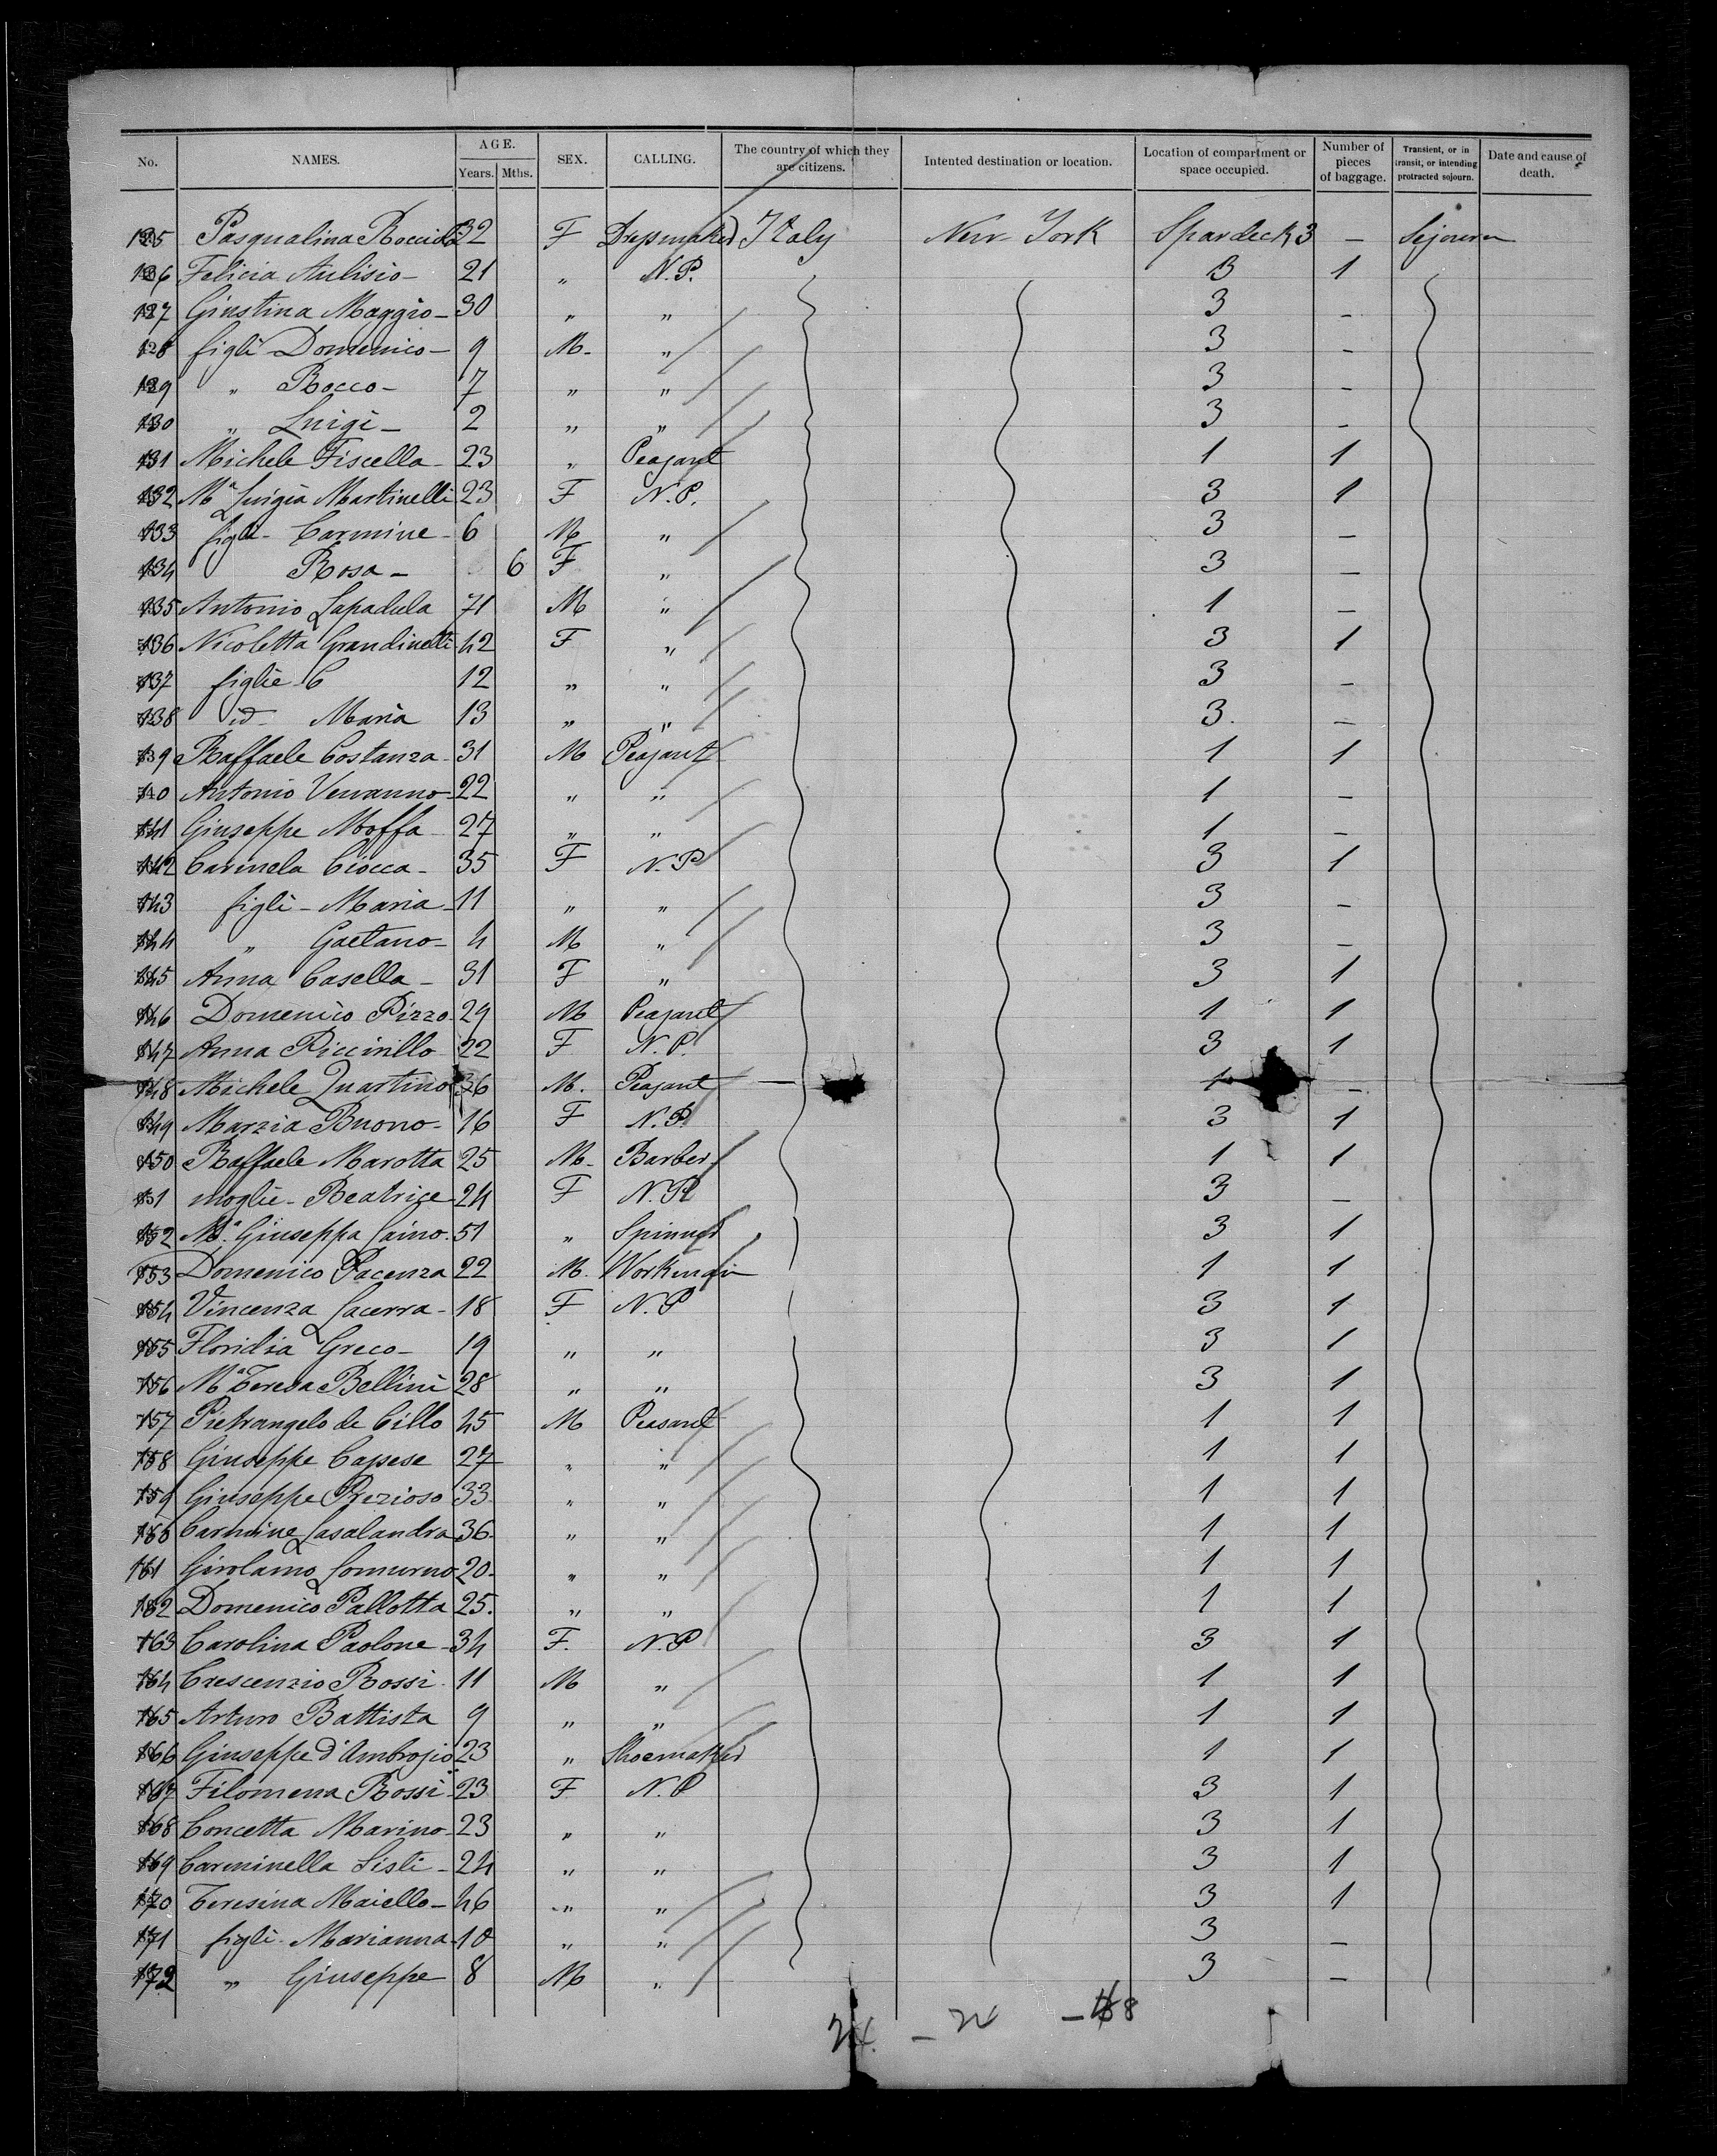 No. NAMES. AGE. Years. Mths. SEX. CALLING. The country of which they are citizens. Intented destination or location. Location of compartment or space occupied. Number of pieces of baggage. Transient, or in transit, or intending protracted sojourn. Date and cause of death.
125 Pasqualina 32 F Dressmaker Italy New York Spardeck 3 — Sejourn
126 Felicia Aulisio — 21 „ N.P. 3 1
127 Giustina Maggio — 30 „ „ 3 —
128 figli Domenico — 9 M. „ 3 —
129 „ Rocco — 7 „ „ 3 —
130 „ Luigi — 2 „ „ 3 —
131 Michele Fiscella 23 „ Peasant 1 1
132 Mª Luigia Martinelli 23 F N.P. 3 1
133 figli - Carmine - 6 M „ 3 —
134 Rosa — 6 F „ 3 —
135 Antonio Lapadula 71 M „ 1 —
136 Nicoletta Grandinetti 42 F „ 3 1
137 figlie C 12 „ „ 3 —
138 id Maria 13 „ „ 3. —
139 Raffaele Costanza 31 M Peasant 1 1
140 Antonio 22 „ „ 1 —
141 Giuseppe Moffa 27 „ „ 1 —
142 Carmela Ciocca - 35 F N.P 3 1
143 figli - Maria 11 „ „ 3 —
144 „ Gaetano — 4 M „ 3 —
145 Anna Casella — 31 F „ 3 1
146 Domenico Pizzo 29 M Peasant 1 1
147 Anna Piccirillo 22 F N.P. 3 1
148 Michele Quartino 36 M. Peasant 1 —
149 Marzia Buono - 16 F N.P. 3 1
150 Raffaele Marotta 25 M. Barber 1 1
151 moglie - Beatrice 24 F N.P. 3 —
152 Mª Giuseppa Laino 51 „ Spinner 3 1
153 Domenico Pacenza 22 M. Workman 1 1
154 Vincenza Lacerra - 18 F N.P 3 1
155 Floridia Greco — 19 „ „ 3 1
156 Mª Teresa Bellini 28 „ „ 3 1
157 Pietrangelo de Cillo 45 M Peasant 1 1
158 Giuseppe Capese 27 „ „ 1 1
159 Giuseppe Prezioso 33 „ „ 1 1
160 Carmine Lasalandra 36. „ „ 1 1
161 Girolamo Lomurno 20- „ „ 1 1
162 Domenico Pallotta 25. „ „ 1 1
163 Carolina Paolone - 34 F. N.P 3 1
164 Crescenzio Rossi 11 M „ 1 1
165 Arturo Battista 9 „ „ 1 1
166 Giuseppe d'Ambrosio 23 „ Shoemaker 1 1
167 Filomena Rossi 23 F N.P 3 1
168 Concetta Marino 23 „ „ 3 1
169 Carminella Sisti - 24 „ „ 3 1
170 Teresina Maiello — 46 „ „ 3 1
171 figli Marianna 10 „ „ 3 —
172 „ Giuseppe 8 M „ 3 —